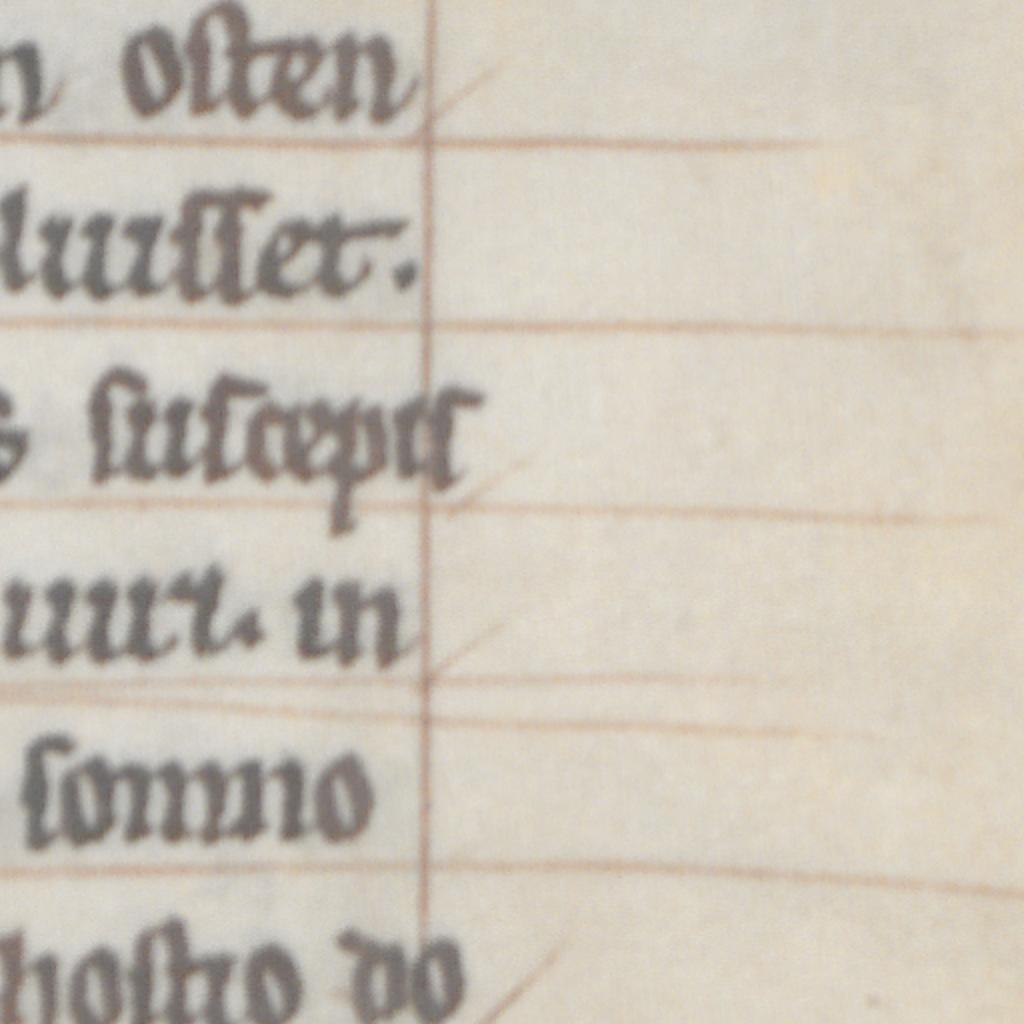 n osten
luisset.
s suscepis
uiut. in
somno
nostro do